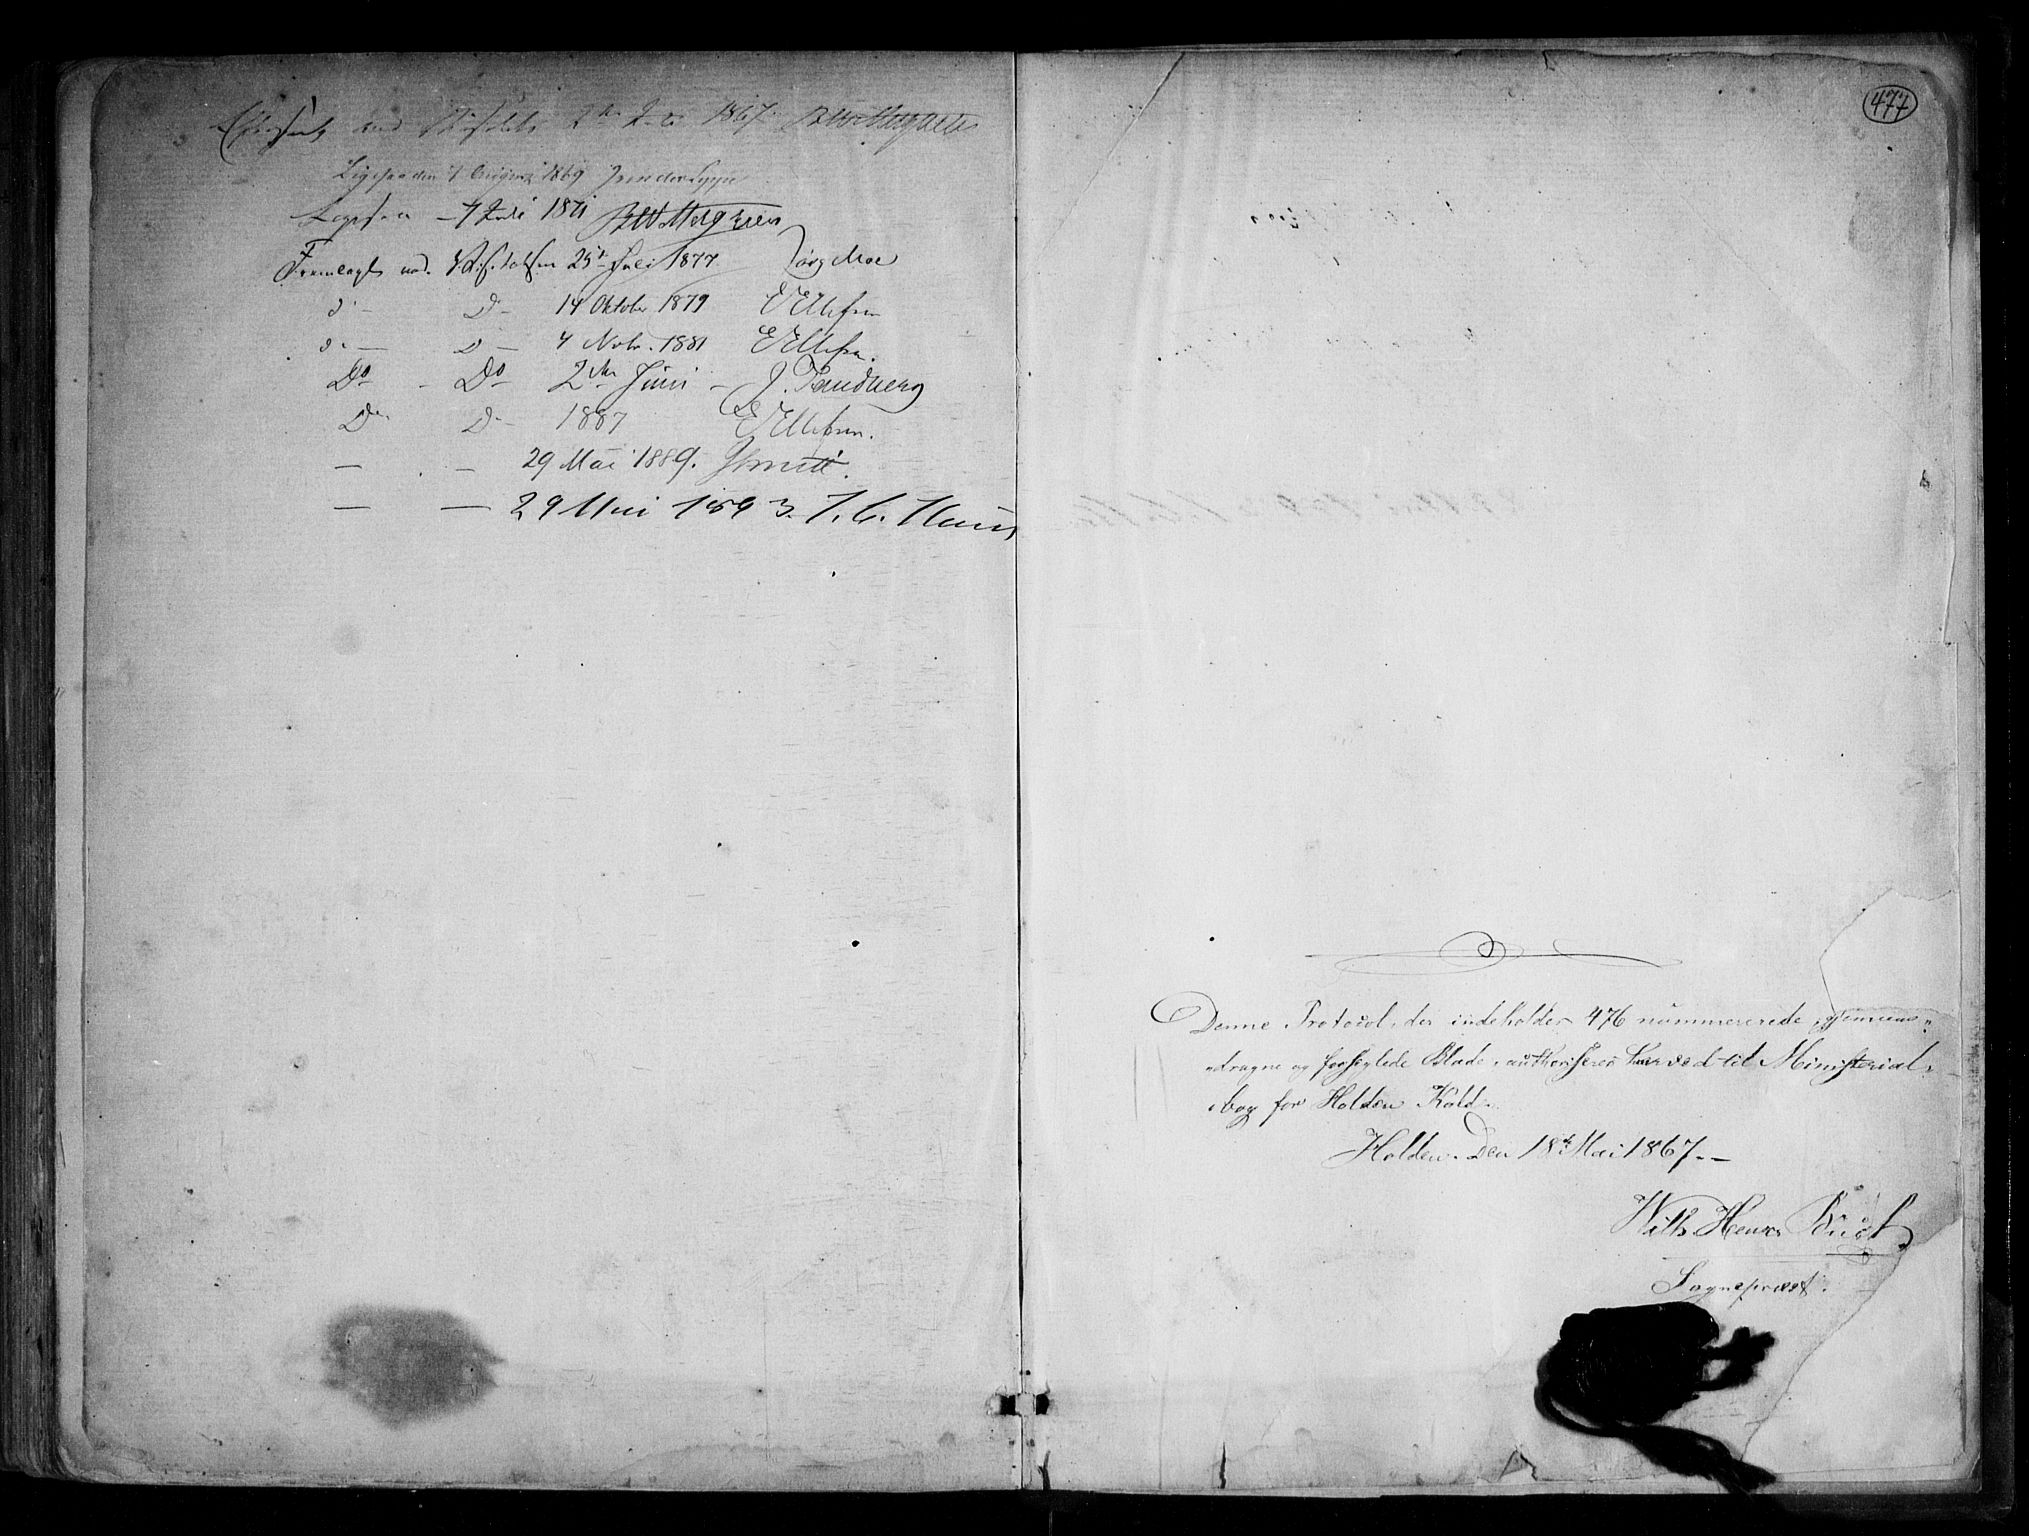 ved 2den Juli 1867.
Ligesaa den 7 August 1869
Ligesaa – 7 Juli 1871
Fremlagt ved Visitatsen 25de Juli 1877 Jørg. Moe
do – Do – 14 Oktober 1879 E Ellefsen
do – Do – 4 Novbr. 1881 E Ellefsen.
Do – Do 2den Juni – J. Sandberg
Do – Do – 1887 E Ellefsen.
— — 29 Mai 1889.
— — 29 Mai 1893. J. C. Heuch
477
Denne Protocol, der indeholder 476 nummererede, gjennem-
dragne og forseglede Blade, authoriseres herved til Ministerial-
bog for Holden Kald.
Holden. Den 18de Mai 1867. –
Buch
Sognepræst.